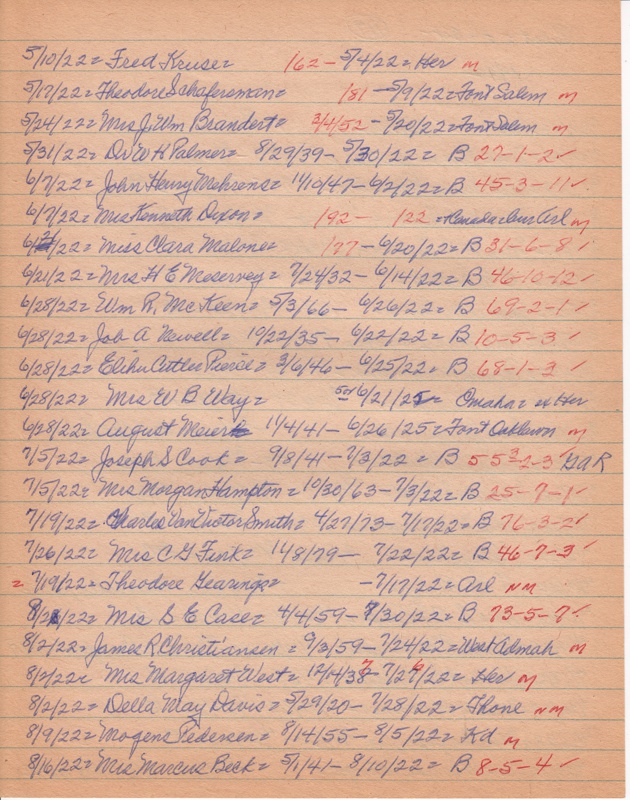 5/10/22 = Fred Kruse = 162 - 5/4/22 = Her m
5/17/22 = Theodore Schafersman = 181 - 5/9/22 = Font Salem m
5/24/22 = Mrs J. Wm Brandert = 3/4/52 - 5/20/22 = Font Salem m
5/31/22 = Dr W H Palmer = 8/29/39 - 5/30/22 = B 27-1-2 ✓
6/7/22 = John Henry Mehrens = 11/10/47 - 6/2/22 = B 45-3-11 ✓
6/7/22 = Mrs Kenneth Dixon = 192 - 122 = Arl m
6/21/22 = Miss Clara Malone = 177 - 6/20/22 = B 31-6-8 ✓
6/21/22 = Mrs H E Meservey = 7/24/32 - 6/14/22 = B 46-10-12 ✓
6/28/22 = Wm R. McKeen = 5/3/66 - 6/26/22 = B 69-2-1 ✓
6/28/22 = Job A Newell = 10/22/35 - 6/22/22 = B 10-5-3 ✓
6/28/22 = Elihu Cutler Pierse = 3/6/46 - 6/25/22 = B 68-1-3 ✓
6/28/22 = Mrs W B Way = 6/21/25 = Omaha = ex Her
6/28/22 = August Meier = 11/4/41 - 6/26/25 = Font m
7/5/22 = Joseph S Cook = 9/8/41 - 7/3/22 = B 55-2-3 ✓ GAR
7/5/22 = Mrs Morgan Hampton = 10/30/63 - 7/3/22 = B 25-7-1 ✓
7/19/22 = Charles Van Victor Smith = 4/27/73 - 7/17/22 = B 76-3-2 ✓
7/26/22 = Mrs C G Fink = 11/8/79 - 7/22/22 = B 46-7-3 ✓
= 7/19/22 = Theodore Gearing = - 7/17/22 = Arl nm
8/2/22 = Mrs S E Case = 4/4/59 - 7/30/22 = B 73-5-7 ✓
8/2/22 = James R Christiansen = 9/3/59 - 7/24/22 = West Admah m
8/2/22 = Mrs Margaret West = 12/14/38 - 7/27/22 = Her m
8/2/22 = Della May Davis = 5/29/20 - 7/28/22 = Thone nm
8/9/22 = Mogens Pedersen = 8/14/55 - 8/5/22 = Kd m
8/16/22 = Mrs Marcus Beck = 5/1/41 - 8/10/22 = B 8-5-4 ✓